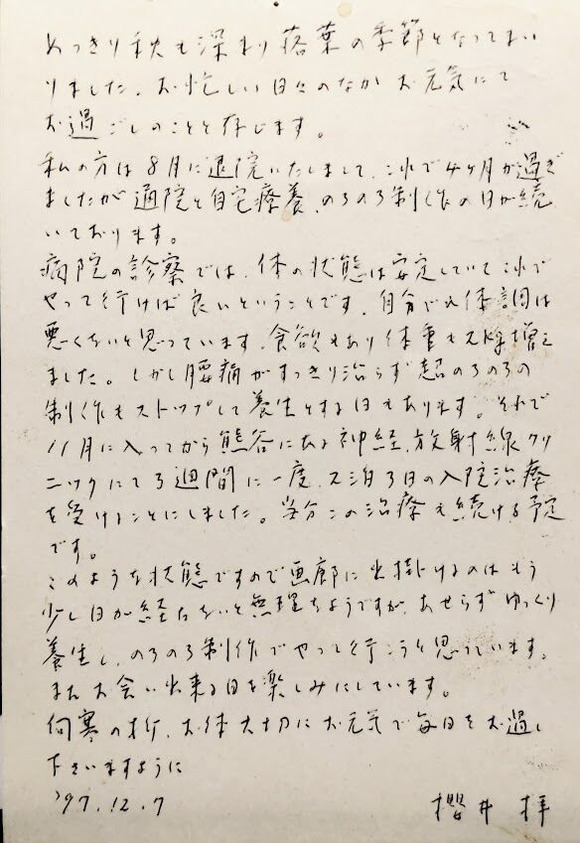 めっきり秋も深まり落葉の季節となってまい
りました、お忙しい日々のなかお元気にて
お過ごしのことと存じます。
私の方は8月に退院いたしまして、これで4ヶ月が過ぎ
ましたが通院と自宅療養、のろのろ制作の日が続
いております。
病院の診察では、体の状態は安定していてこれで
やって行けば良いということです、自分でも体調は
悪くないと思っています、食欲もあり体重も2kg増え
ました。しかし腰痛がすっきり治らず超のろのろの
制作もストップして養生とする日もあります。それで
11月に入ってから熊谷にある神経、放射線クリ
ニックにて3週間に一度、2泊3日の入院治療
を受けることにしました。当分この治療を続ける予定
です。
このような状態ですので画廊に出掛けるのはもう
少し日が経たないと無理なようですが、あせらずゆっくり
養生し、のろのろ制作でやって行こうと思っています。
またお会い出来る日を楽しみにしています。
向寒の折、お体大切にお元気で毎日をお過し
下さいますように
'97.12.7 櫻井 拝